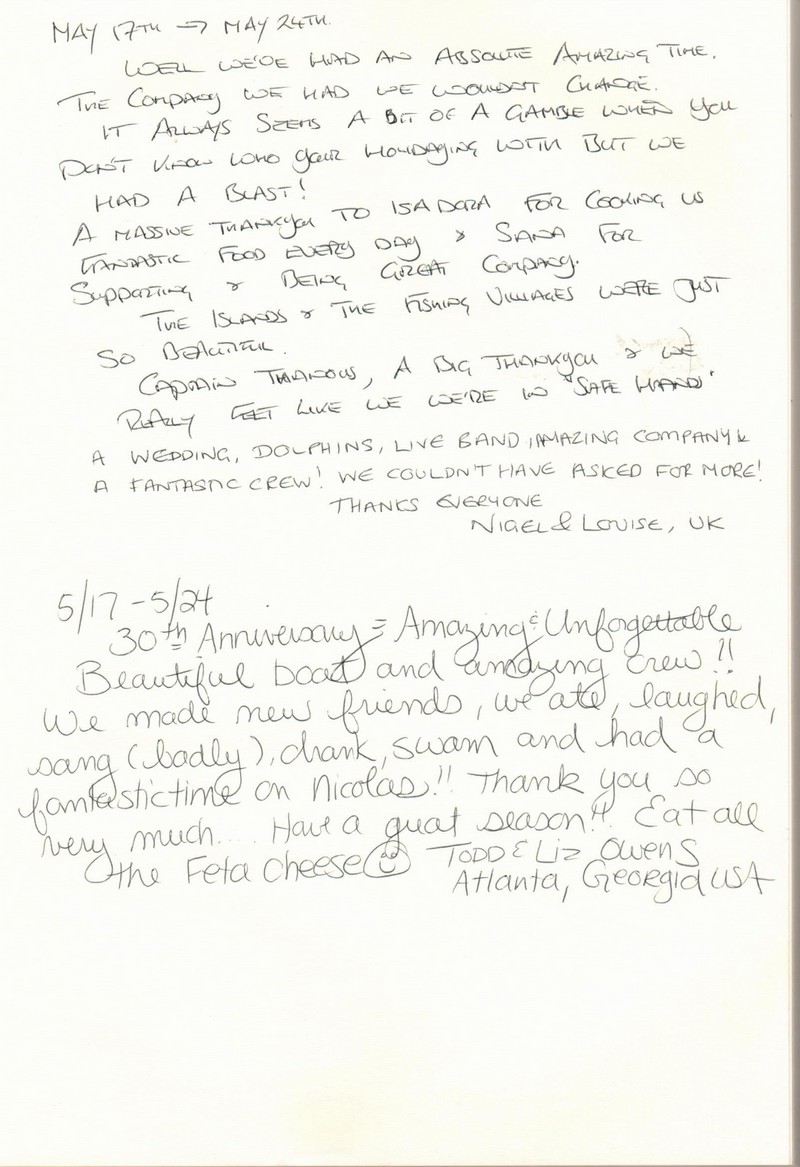 MAY 17TH → MAY 24TH.
WELL WE'VE HAD AN ABSOLUTE AMAZING TIME.
THE COMPANY WE HAD WE WOULDN'T CHANGE.
IT ALWAYS SEEMS A BIT OF A GAMBLE WHEN YOU
DON'T KNOW WHO YOUR HOLIDAYING WITH BUT WE
HAD A BLAST!
A MASSIVE THANKYOU TO ISADORA FOR COOKING US
FANTASTIC FOOD EVERY DAY & SANA FOR
SUPPORTING & BEING GREAT COMPANY.
THE ISLANDS & THE FISHING VILLAGES WERE JUST
SO BEAUTIFUL.
CAPTAIN THANOUS, A BIG THANKYOU & WE
REALLY FEET LIKE WE WE'RE IN "SAFE HANDS"
A WEDDING, DOLPHINS, LIVE BAND, AMAZING COMPANY &
A FANTASTIC CREW! WE COULDN'T HAVE ASKED FOR MORE!
THANKS EVERYONE
NIGEL & LOUISE, UK
5/17 - 5/24
30th Anniversary = Amazing & Unforgettable
Beautiful boat and amazing crew!!
We made new friends, we ate, laughed,
sang (badly), drank, swam and had a
fantastic time on Nicolas!! Thank you so
very much.... Have a great season!! Eat all
the Feta Cheese☺ TODD & Liz Owens
Atlanta, Georgia USA